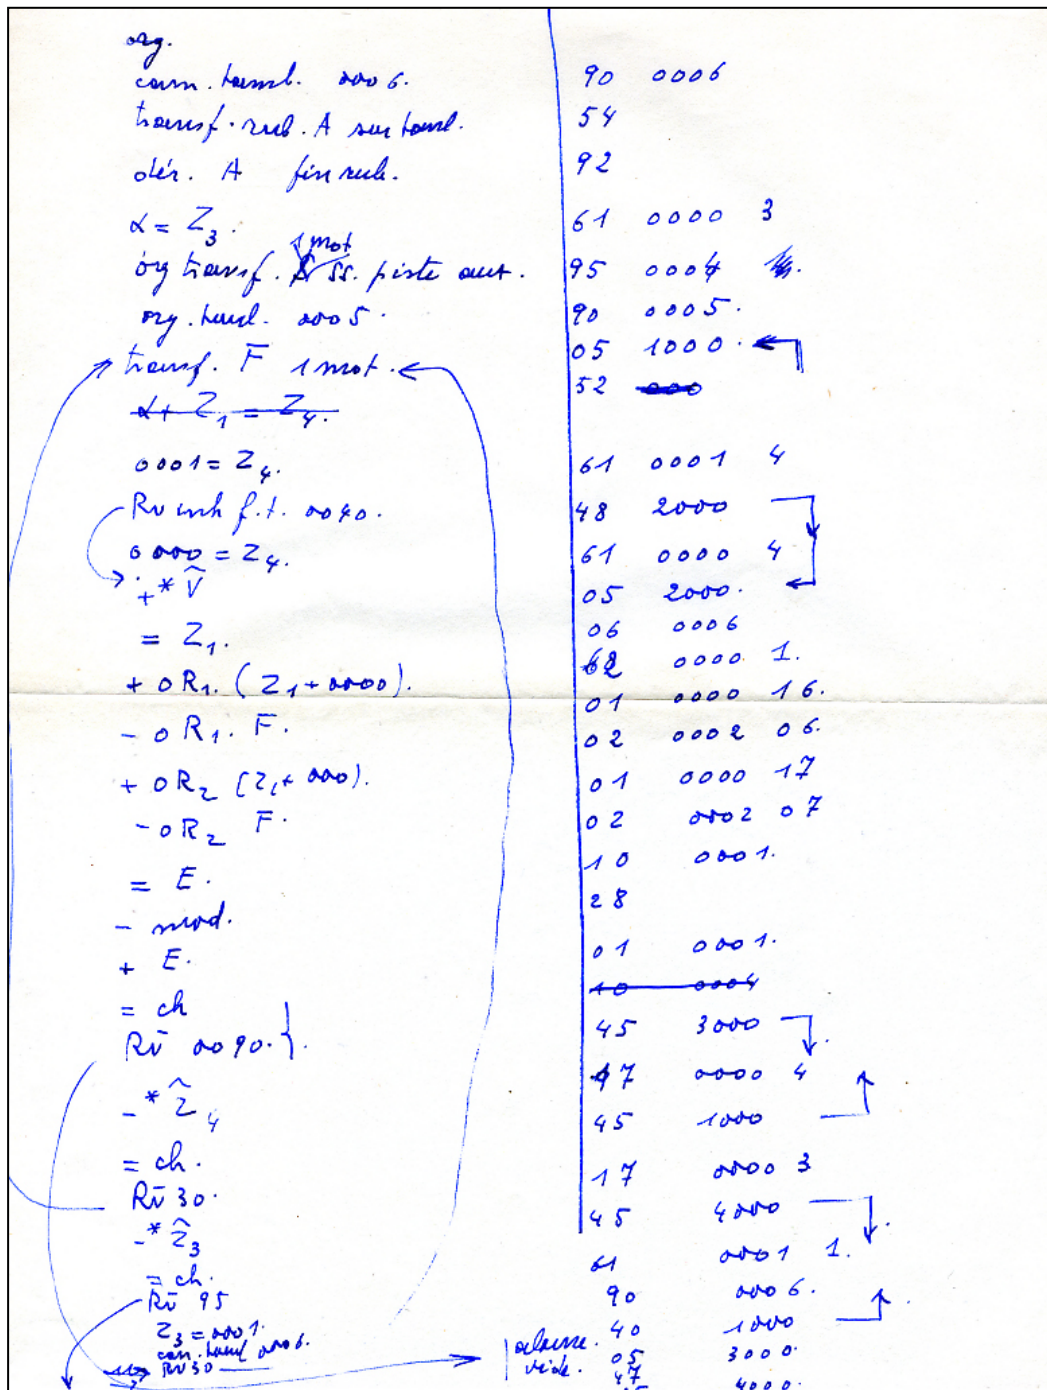 org.
cam. tamb. 0006.
transf. rub. A sur tamb.
dér. A fin rub.
α = Z3.
1 mot
org transf. ss. piste aut.
org. tamb. 0005.
transf. F̅ 1 mot.
α + Z1 = Z4.
0001 = Z4.
Rv inh f.t. 0040.
0000 = Z4.
+* V̂
= Z1.
+ 0R1. (Z1 + 0000).
- 0R1. F̅.
+ 0R2 (Z1 + 000).
- 0R2 F̅.
= E.
- mod.
+ E.
= ch
Rv̄ 0090.
-* Ẑ4
= ch.
Rv̄ 30.
-* Ẑ3
= ch.
Rv̄ 95
Z3 = 0001.
cam. tamb 0006.
Rv 30
90 0006
54
92
61 0000 3
95 0004
90 0005.
05 1000.
52 000
61 0001 4
48 2000
61 0000 4
05 2000.
06 0006
62 0000 1.
01 0000 16.
02 0002 06.
01 0000 17
02 0002 07
10 0001.
28
01 0001.
10 0004
45 3000
17 0000 4
45 1000
17 0000 3
45 4000
61 0001 1.
90 0006.
40 1000
05 3000.
vide. 47
4000.